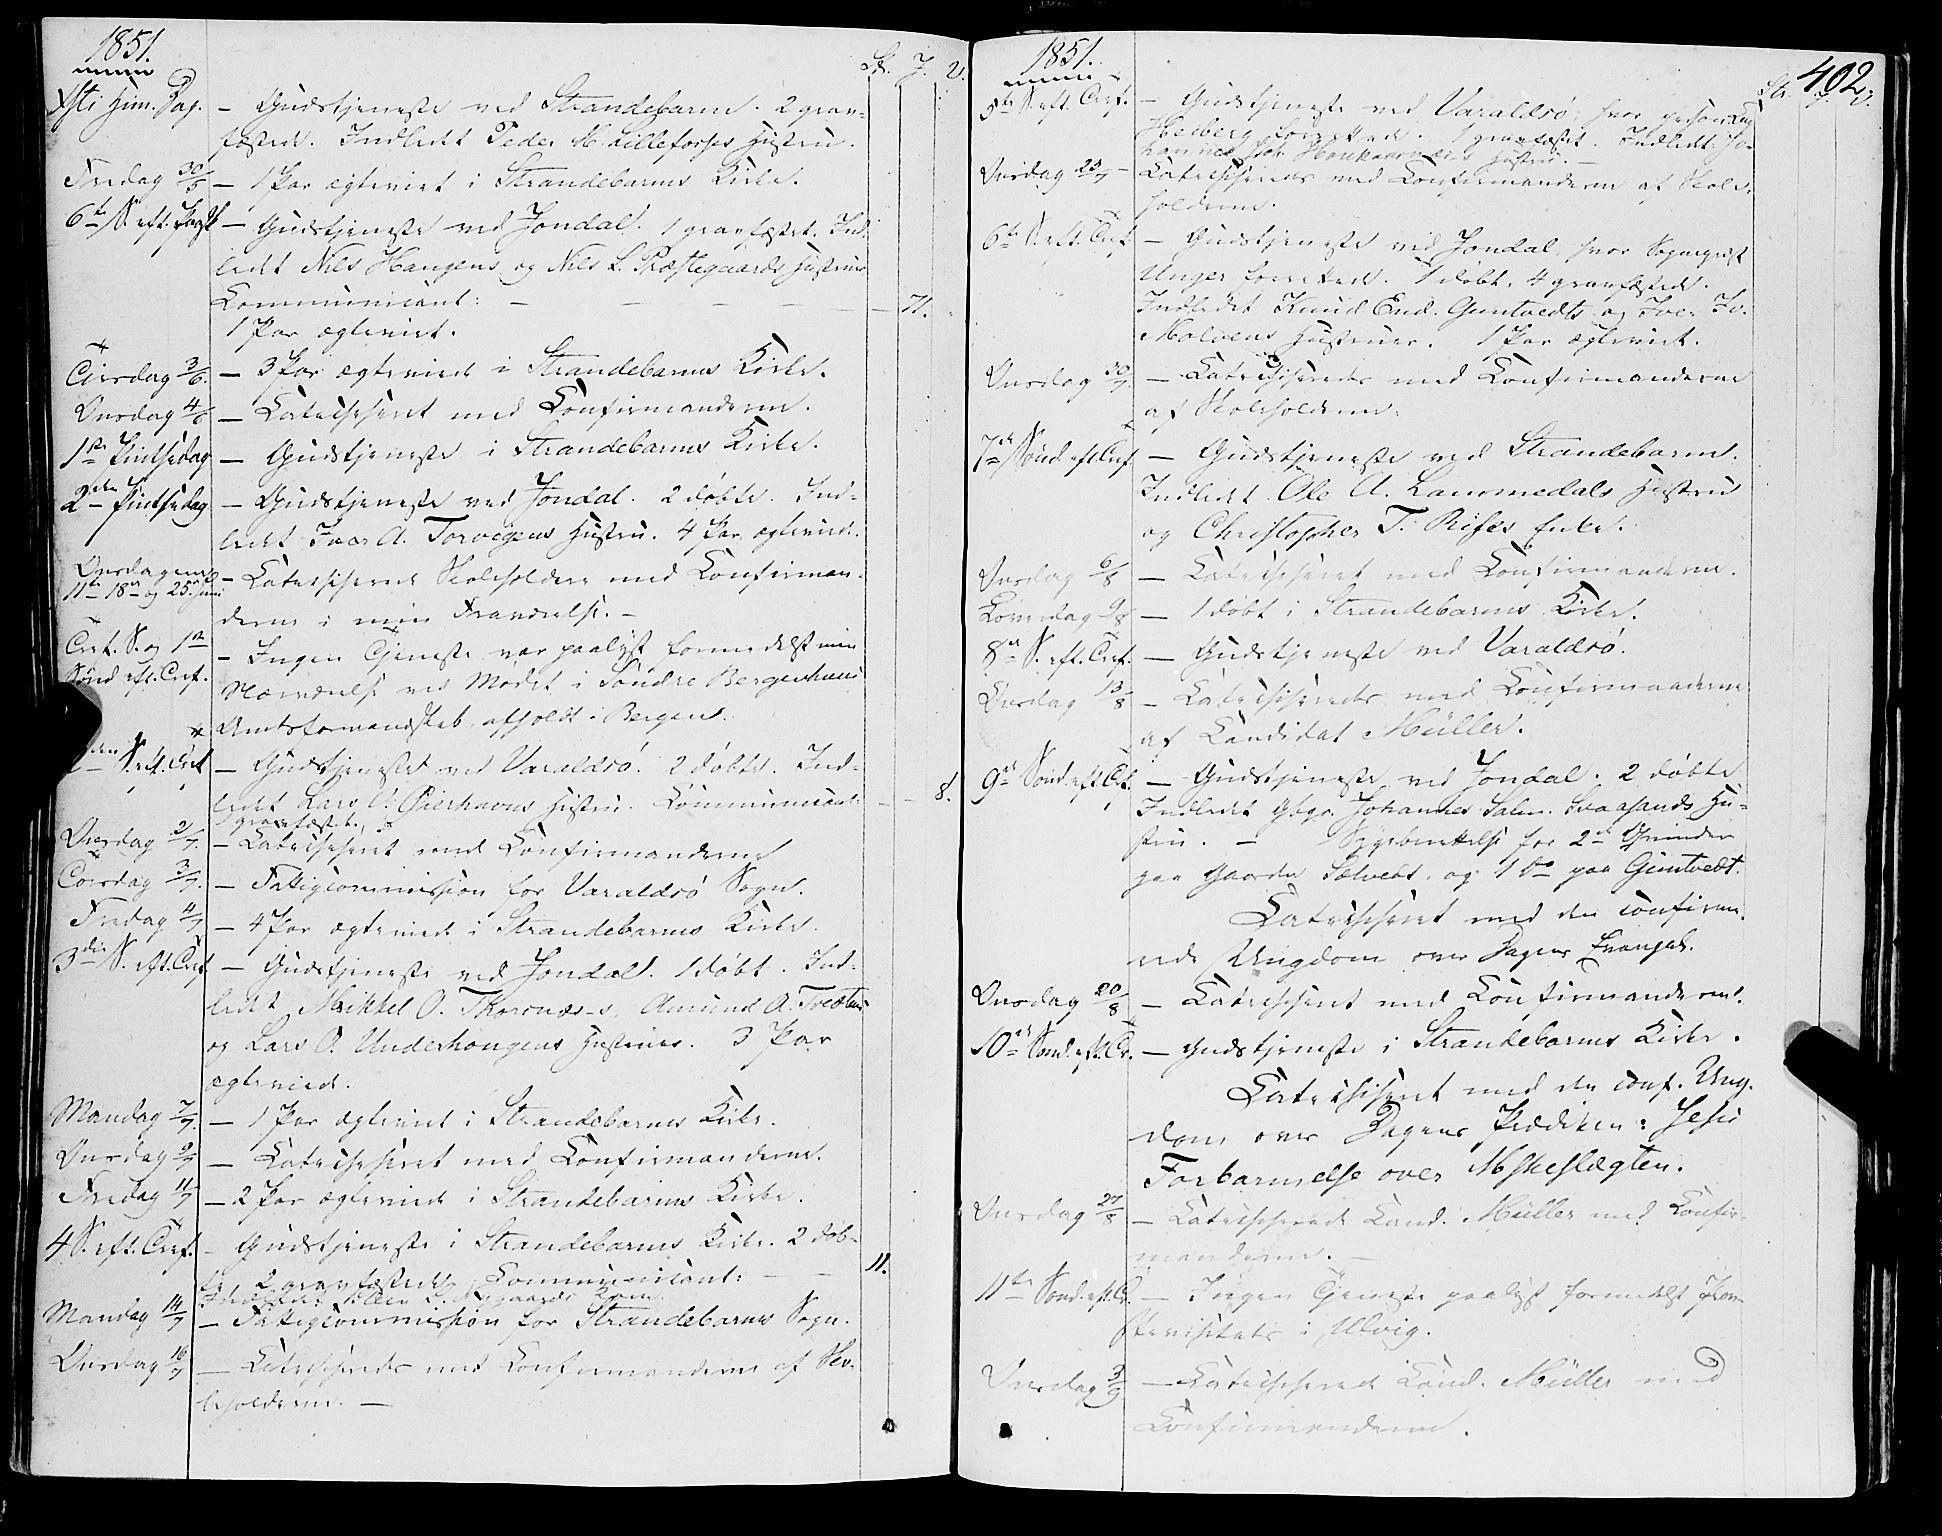 1851.
St. J. V.
Xsti Him. Dag. — Gudstjeneste ved Strandebarm. 2 grav-
fæstede. Indledt Peder M. Lilleforses Hustru.
Fredag 30/5 — 1 Par ægteviet i Strandebarms Kirke.
6te S. eft. Paask — Gudstjeneste ved Jondal. 1 gravfæstet. Ind-
ledt Nils Haugens og Nils L. Præstegaards Hustruer
Communicant: — — — — 71.
1 Par ægteviet.
Tirsdag 3/6. — 3 Par ægteviede i Strandebarms Kirke.
Onsdag 4/6 — Catechiseret med Confirmanderne.
1ste Pintsedag — Gudstjeneste i Strandebarms Kirke.
2den Pintsedag — Gudstjeneste ved Jondal. 2 døbte. Ind-
ledt Ivar A. Torvigens Hustru. 4 Par ægteviede.
Onsdagene
11te 18de og 25de Juni — Catechiserede Skoleholdere med Confirman-
derne i min Fraværelse. —
Tref. S. og 1ste
Sönd eft. Tref. — Ingen Tjeneste var paalyst formedelst min
Nærværelse ved Mödet i Söndre Bergenhuus
Amtsformandskab, afholdt i Bergen.
S. eft. Tref — Gudstjeneste ved Varaldsö. 2 døbte. Ind-
ledt Lars Hustru. Communicant: — — 8.
1 gravfæstet.
Onsdag 2/7. — Catechiseret med Confirmanderne
Torsdag 3/7. — Fattigcommission for Varaldsö Sogn.
Fredag 4/7 — 4 Par ægteviede i Strandebarms Kirke.
3die S. eft. Tref — Gudstjeneste ved Jondal. 1 døbt. Ind-
ledt Mikkel O. Thorsnæs's, Amund A. Tvedtes
og Lars O. Underhougens Hustruer. 3 Par
ægteviede.
Mandag 7/7. — 1 Par ægteviet i Strandebarms Kirke.
Onsdag 9/7 — Catechiseret med Confirmanderne.
Fredag 11/7 — 2 Par ægteviede i Strandebarms Kirke.
4 S. eft. Tref. — Gudstjeneste i Strandebarms Kirke. 2 døb-
te, 2 gravfæstede, Communicant: — — 11.
Indledt Kone
Mandag 14/7 — Fattigcommission for Strandebarms Sogn.
Onsdag 16/7 — Catechiseredes med Confirmanderne af Sko-
leholderne. —
1851.
402.
St. J. V.
5te S. eft. Tref. — Gudstjeneste ved Varaldsö, hvor
Heiberg forrettede. 1 gravfæstet. Indledt Jo-
hannes Hustru. —
Onsdag 23/7 — Catechiseredes med Confirmanderne af Skole-
holderne.
6te S. eft. Tref. — Gudstjeneste ved Jondal, hvor Sognepræst
Unger forrettede. 1 døbt. 4 gravfæstede.
Indledet Knud End. Guntvedts og Iver Iv.
Molvens Hustruer. 1 Par ægteviet.
Onsdag 30/7 — Catechiseredes med Confirmanderne
af Skoleholderne.
7de Sönd. eft Tref. — Gudstjeneste ved Strandebarm.
Indledt Ole A. Lammedals Hustru
og Christopher T. Rises Enke.
Onsdag 6/8 — Catechiseret med Confirmanderne.
Löverdag 9/8 — 1 døbt i Strandebarms Kirke.
8de S. eft. Tref. — Gudstjeneste ved Varaldsö.
Onsdag 13/8 — Catechiseredes med Confirmanderne
af Candidat Müller.
9de Sönd. eft. Tr. — Gudstjeneste ved Jondal. 2 døbte
Indledet Johannes Salm. Svaasands Hu-
stru. — Sygeberettelse for 2de Qvinder
paa Gaarden Sælvedt, og 1 do paa Guntvedt.
Catechiseret med den confirme-
rede Ungdom over Dagens Evangel.
Onsdag 20/8 — Catechiseret med Confirmanderne.
10de Sönd. eft. Tr. — Gudstjeneste i Strandebarms Kirke.
Catechiseret med den conf. Ung-
dom over Dagens Prædiken: Jesu
Forbarmelse over Mskeslægten.
Onsdag 27/8 — Catechiserede Cand. Müller med Confir-
manderne. —
11te Sönd. eft. Tr. — Ingen Tjeneste paalyst formedelst Prov-
stevisitats i Ulvig.
Onsdag 3/9 — Catechiserede Cand. Müller med
Confirmanderne.